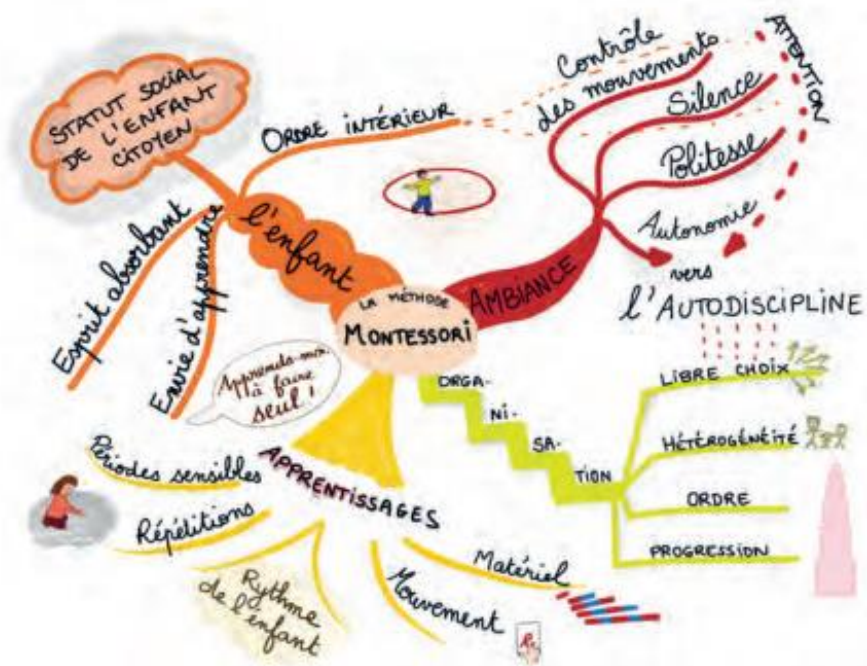 LA MÉTHODE
MONTESSORI
l'enfant
STATUT SOCIAL
DE L'ENFANT
CITOYEN
ORDRE INTÉRIEUR
Esprit absorbant
Envie d'apprendre
Apprends-moi
à faire
seul !
AMBIANCE
Contrôle
des mouvements
Silence
Politesse
Autonomie
ATTENTION
vers
l'AUTODISCIPLINE
ORGA-
NI-
SA-
TION
LIBRE CHOIX
HÉTÉROGÉNÉITÉ
ORDRE
PROGRESSION
APPRENTISSAGES
Périodes sensibles
Répétitions
Rythme
de l'enfant
Mouvement
Matériel